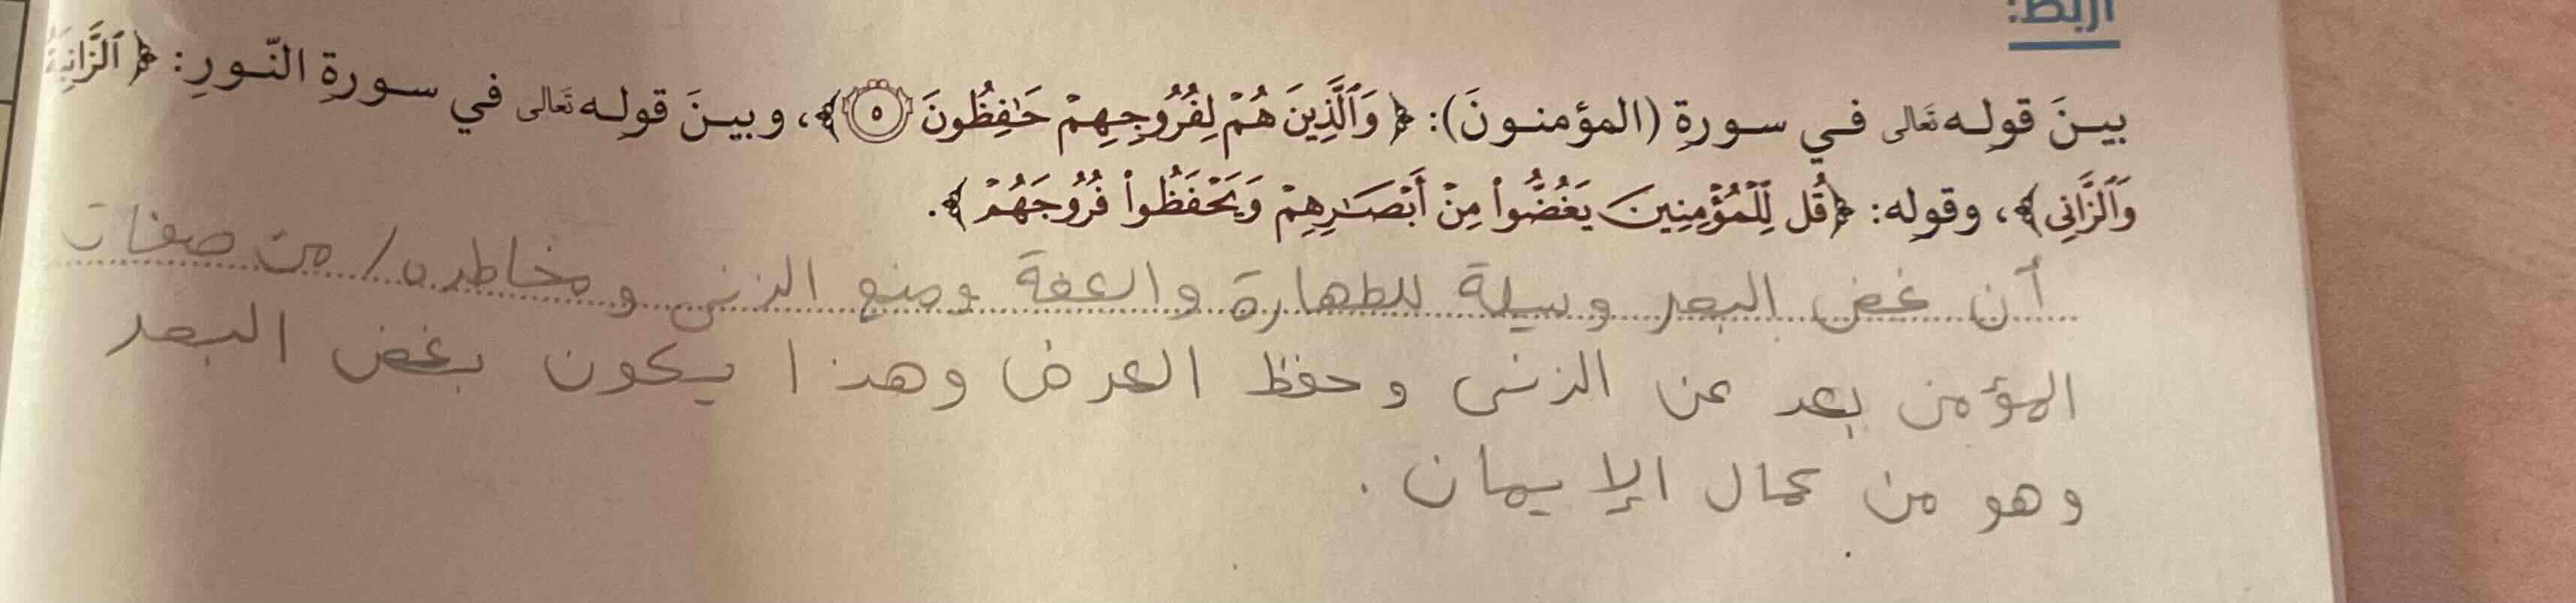 اربط:
بينَ قولـه تَعَالى فـي سـورةِ (المؤمنـونَ): ﴿وَٱلَّذِينَ هُمۡ لِفُرُوجِهِمۡ حَٰفِظُونَ ٥﴾، وبيـنَ قولـه تَعَالى في سـورةِ النّـورِ: ﴿ٱلزَّانِيَةُ
وَٱلزَّانِي﴾، وقوله: ﴿قُل لِّلۡمُؤۡمِنِينَ يَغُضُّواْ مِنۡ أَبۡصَٰرِهِمۡ وَيَحۡفَظُواْ فُرُوجَهُمۡ﴾.
أن غض البصر وسيلة للطهارة والعفة ومنع الزنى ومخاطره / من صفات
المؤمن بعد عن الزنى وحفظ العرض وهذا يكون بغض البصر
وهو من كمال الإيمان.